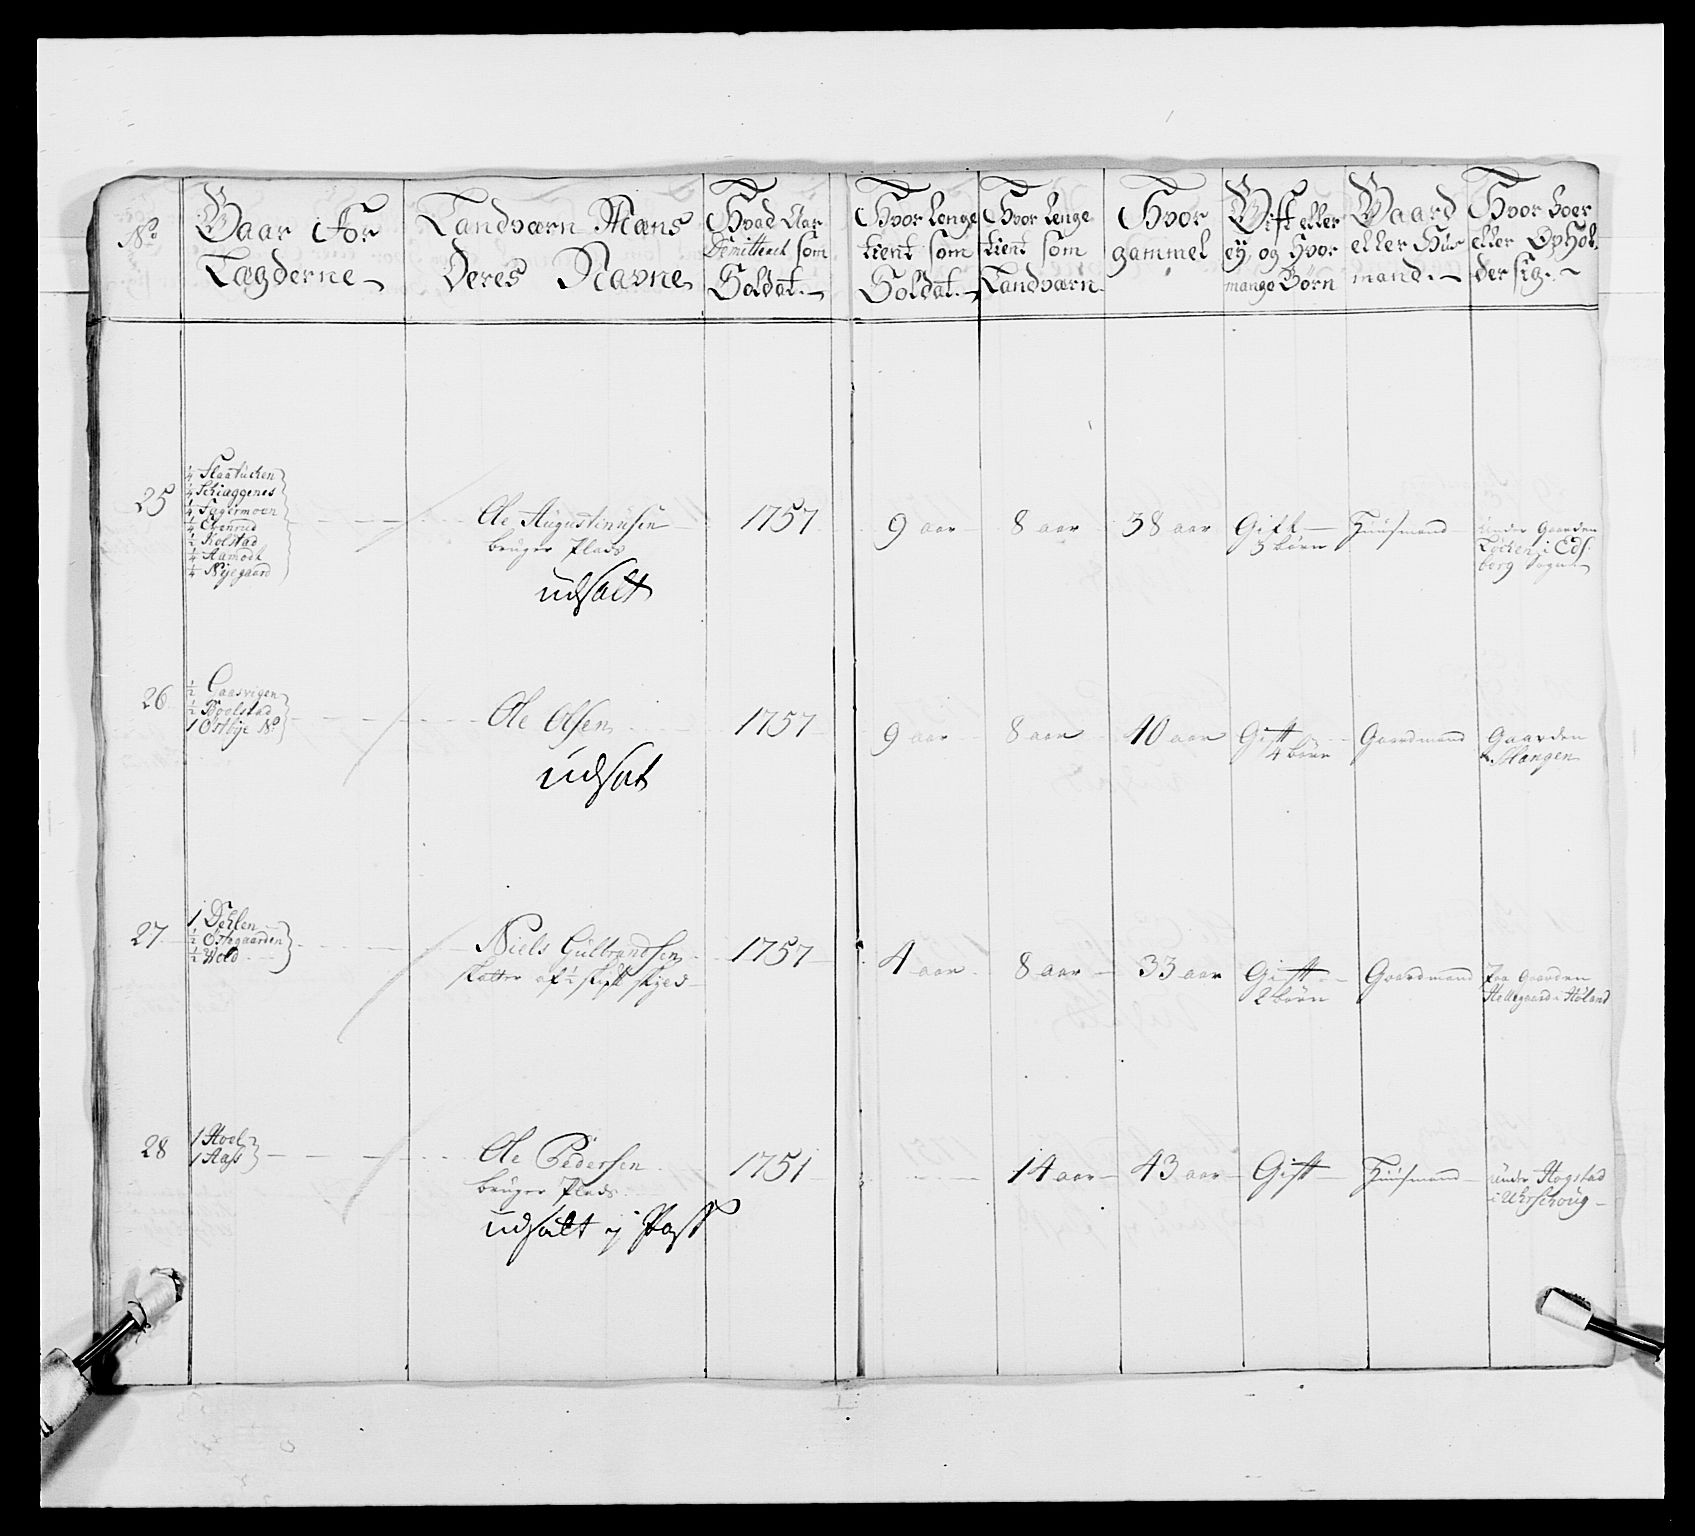 No
Gaar for
Lægderne
Landværn Mæns
Deres Navne
Hvad Aar
Demitteret som
Soldat
Hvor lenge
tient som
Soldat
Hvor lenge
tient som
Landværn
Hvor
gammel
Gift eller
ey, og hvor
mange Børn
Gaard
eller Huus
mand
Hvor boer
eller Ophol
der sig
25
1/4 Flaatüchen
1/4 Schiaggenes
1/4 Fagermoen
1/4 Egenrud
1/2 Kolstad
1/4 Aamodt
1/4 Nyegaard
Ole Augustinusen
bruger Plads
udsatt
1757
9 aar
8 aar
38 aar
Gift
3 børn
Huusmand
under Gaarden
Løchen i Eds
berg Sogn
26
1/2 Gaasvigen
1/2 Boolstad
1 Østbye No
Ole Olsen
udsat
1757
9 aar
8 aar
40 aar
Gift
4 børn
Gaardmand
Gaarden
Slangen
27
1 Dehlen
1/2 Østegaarden
1/2 Wold
Niels Gulbrandsen
skatter af 1/2 skpd
1757
4 aar
8 aar
33 aar
Gift
2 børn
Gaardmand
Paa Gaarden
Hellegaard i Høland
28
1 Hoel
1 Aass
Ole Pedersen
bruger Plads
udsatt j Pass
1751
14 aar
43 aar
Gift
Huusmand
under Hogstad
i Uhrschoug